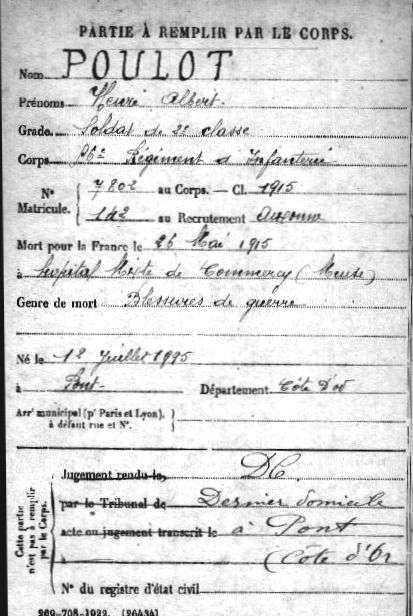 PARTIE À REMPLIR PAR LE CORPS.
Nom POULOT
Prénoms Henri Albert.
Grade Soldat de 2e classe
Corps 56e Régiment d'Infanterie
N° Matricule. { 7802 au Corps. — Cl. 1915
142 au Recrutement Auxonne
Mort pour la France le 26 Mai 1915
à hopital Mixte de Commercy (Meuse)
Genre de mort Blessures de guerre
Né le 12 Juillet 1995
à Pont- Département Côte D'or
Arrt municipal (pr Paris et Lyon), à défaut rue et N°. }
Cette partie n'est pas à remplir par le Corps. {
Jugement rendu le
par le Tribunal de Dernier domicile
acte ou jugement transcrit le à Pont
à (Côte d'Or
N° du registre d'état civil
969-708-1922. [26434]